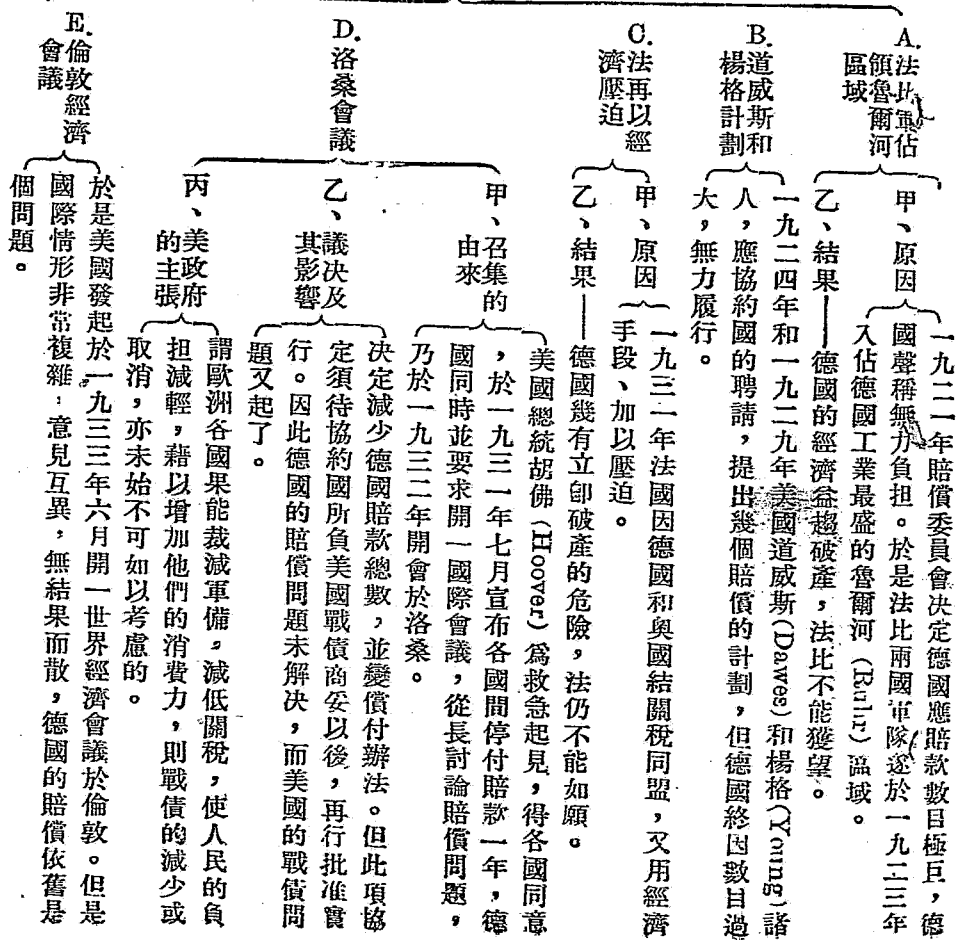 A.法比軍佔
領魯爾河
區域
甲、原因
一九二一年賠償委員會決定德國應賠款數目極巨,德
國聲稱無力負担。於是法比兩國軍隊遂於一九二三年
入佔德國工業最盛的魯爾河(Ruhr)區域。
乙、結果——德國的經濟益趨破產,法比不能獲望。
B.道威斯和
楊格計劃
一九二四年和一九二九年美國道威斯(Dawes)和楊格(Young)諸
人,應協約國的聘請,提出幾個賠償的計劃,但德國終因數目過
大,無力履行。
C.法再以經
濟壓迫
甲、原因
一九三一年法國因德國和奧國結關稅同盟,又用經濟
手段、加以壓迫。
乙、結果——德國幾有立卽破產的危險,法仍不能如願。
D.洛桑會議
甲、召集的
由來
美國總統胡佛(Hoover)爲救急起見,得各國同意
,於一九三一年七月宣布各國間停付賠款一年,德
國同時並要求開一國際會議,從長討論賠償問題,
乃於一九三二年開會於洛桑。
乙、議決及
其影響
決定減少德國賠款總數,並變償付辦法。但此項協
定須待協約國所負美國戰債商妥以後,再行批准實
行。因此德國的賠償問題未解決,而美國的戰債問
題又起了。
丙、美政府
的主張
謂歐洲各國果能裁減軍備,減低關稅,使人民的負
担減輕,藉以增加他們的消費力,則戰債的減少或
取消,亦未始不可如以考慮的。
E.倫敦經濟
會議
於是美國發起於一九三三年六月開一世界經濟會議於倫敦。但是
國際情形非常複雜,意見互異,無結果而散,德國的賠償依舊是
個問題。